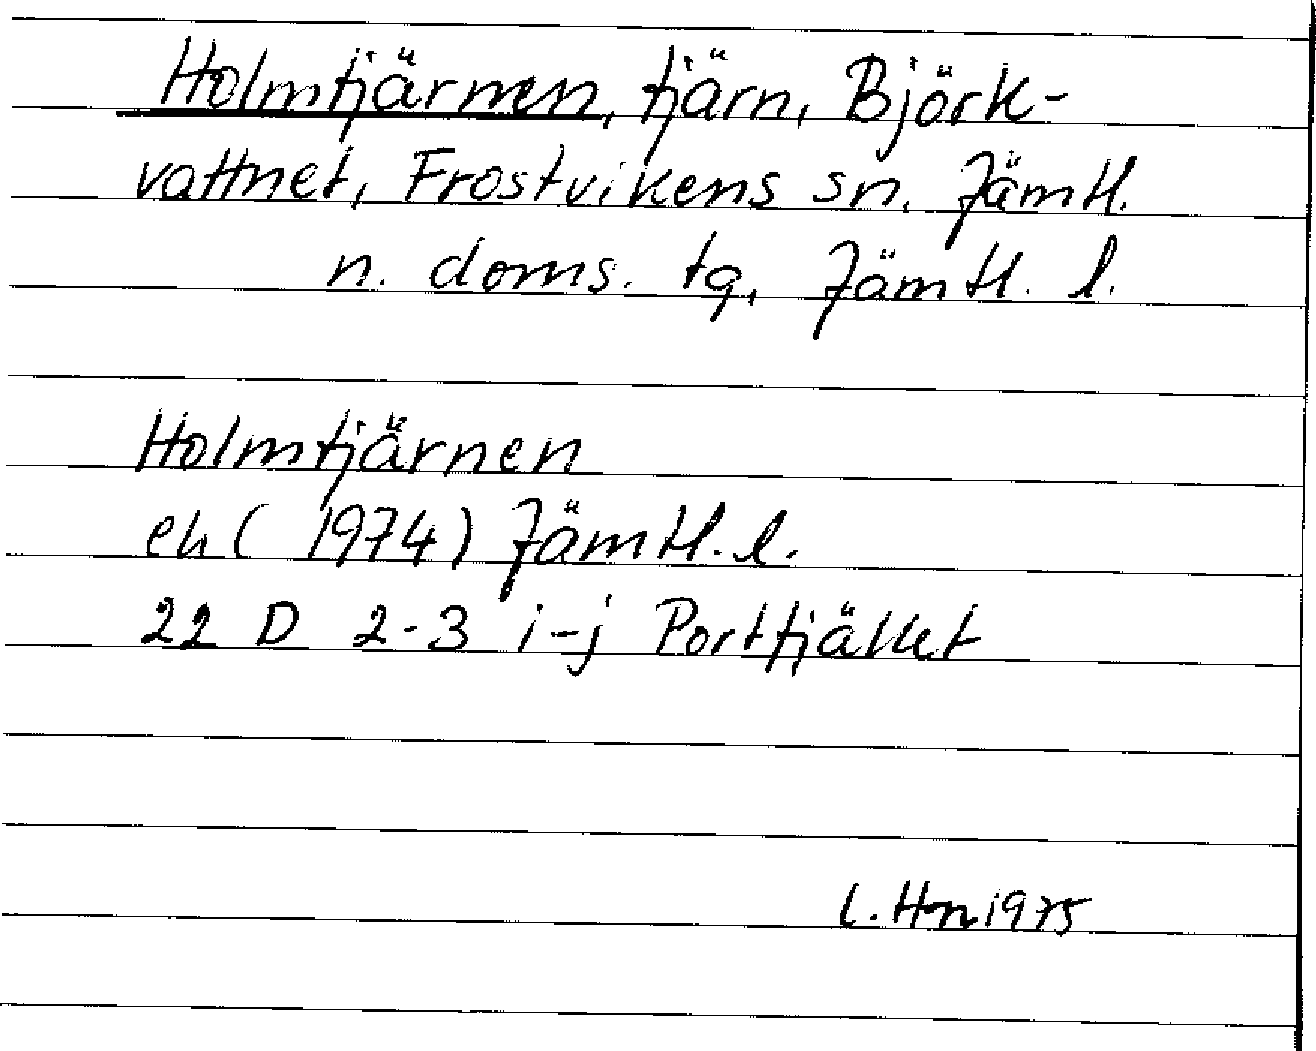 Holmtjärnen, tjärn, Björk-
vattnet, Frostvikens sn. Jämtl.
n. doms. tg, Jämtl. l.
Holmtjärnen
ek (1974) Jämtl. l.
22 D 2-3 i-j Portfjället
L. Hn 1975